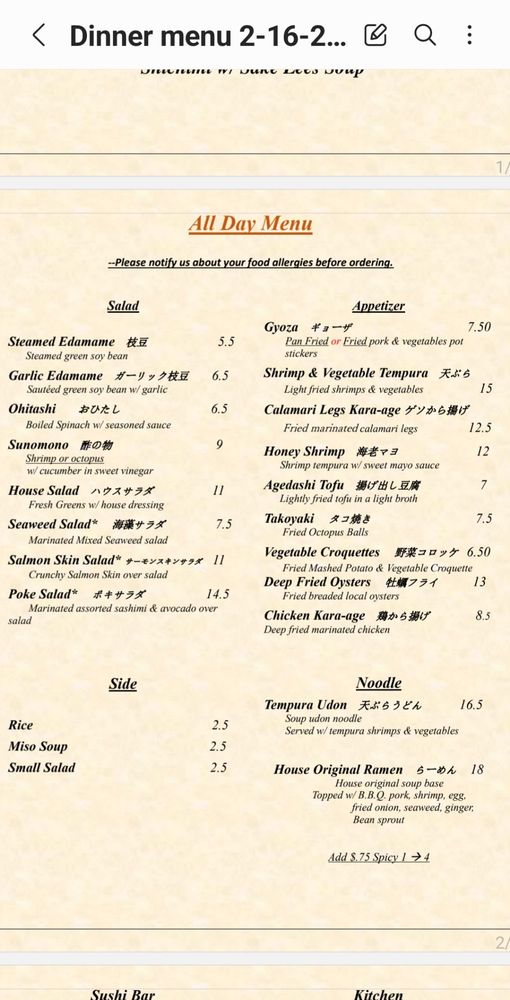 Dinner menu 2-16-2...
Shichimi w/ Sake Lees Soup
1/
All Day Menu
--Please notify us about your food allergies before ordering.
Salad
Steamed Edamame 枝豆 5.5
Steamed green soy bean
Garlic Edamame ガーリック枝豆 6.5
Sautéed green soy bean w/ garlic
Ohitashi おひたし 6.5
Boiled Spinach w/ seasoned sauce
Sunomono 酢の物 9
Shrimp or octopus
w/ cucumber in sweet vinegar
House Salad ハウスサラダ 11
Fresh Greens w/ house dressing
Seaweed Salad* 海藻サラダ 7.5
Marinated Mixed Seaweed salad
Salmon Skin Salad* サーモンスキンサラダ 11
Crunchy Salmon Skin over salad
Poke Salad* ポキサラダ 14.5
Marinated assorted sashimi & avocado over
salad
Side
Rice 2.5
Miso Soup 2.5
Small Salad 2.5
Appetizer
Gyoza ギョーザ 7.50
Pan Fried or Fried pork & vegetables pot
stickers
Shrimp & Vegetable Tempura 天ぷら
Light fried shrimps & vegetables 15
Calamari Legs Kara-age ゲソから揚げ
Fried marinated calamari legs 12.5
Honey Shrimp 海老マヨ 12
Shrimp tempura w/ sweet mayo sauce
Agedashi Tofu 揚げ出し豆腐 7
Lightly fried tofu in a light broth
Takoyaki タコ焼き 7.5
Fried Octopus Balls
Vegetable Croquettes 野菜コロッケ 6.50
Fried Mashed Potato & Vegetable Croquette
Deep Fried Oysters 牡蠣フライ 13
Fried breaded local oysters
Chicken Kara-age 鶏から揚げ 8.5
Deep fried marinated chicken
Noodle
Tempura Udon 天ぷらうどん 16.5
Soup udon noodle
Served w/ tempura shrimps & vegetables
House Original Ramen らーめん 18
House original soup base
Topped w/ B.B.Q. pork, shrimp, egg,
fried onion, seaweed, ginger,
Bean sprout
Add $.75 Spicy 1 → 4
2/
Sushi Bar
Kitchen